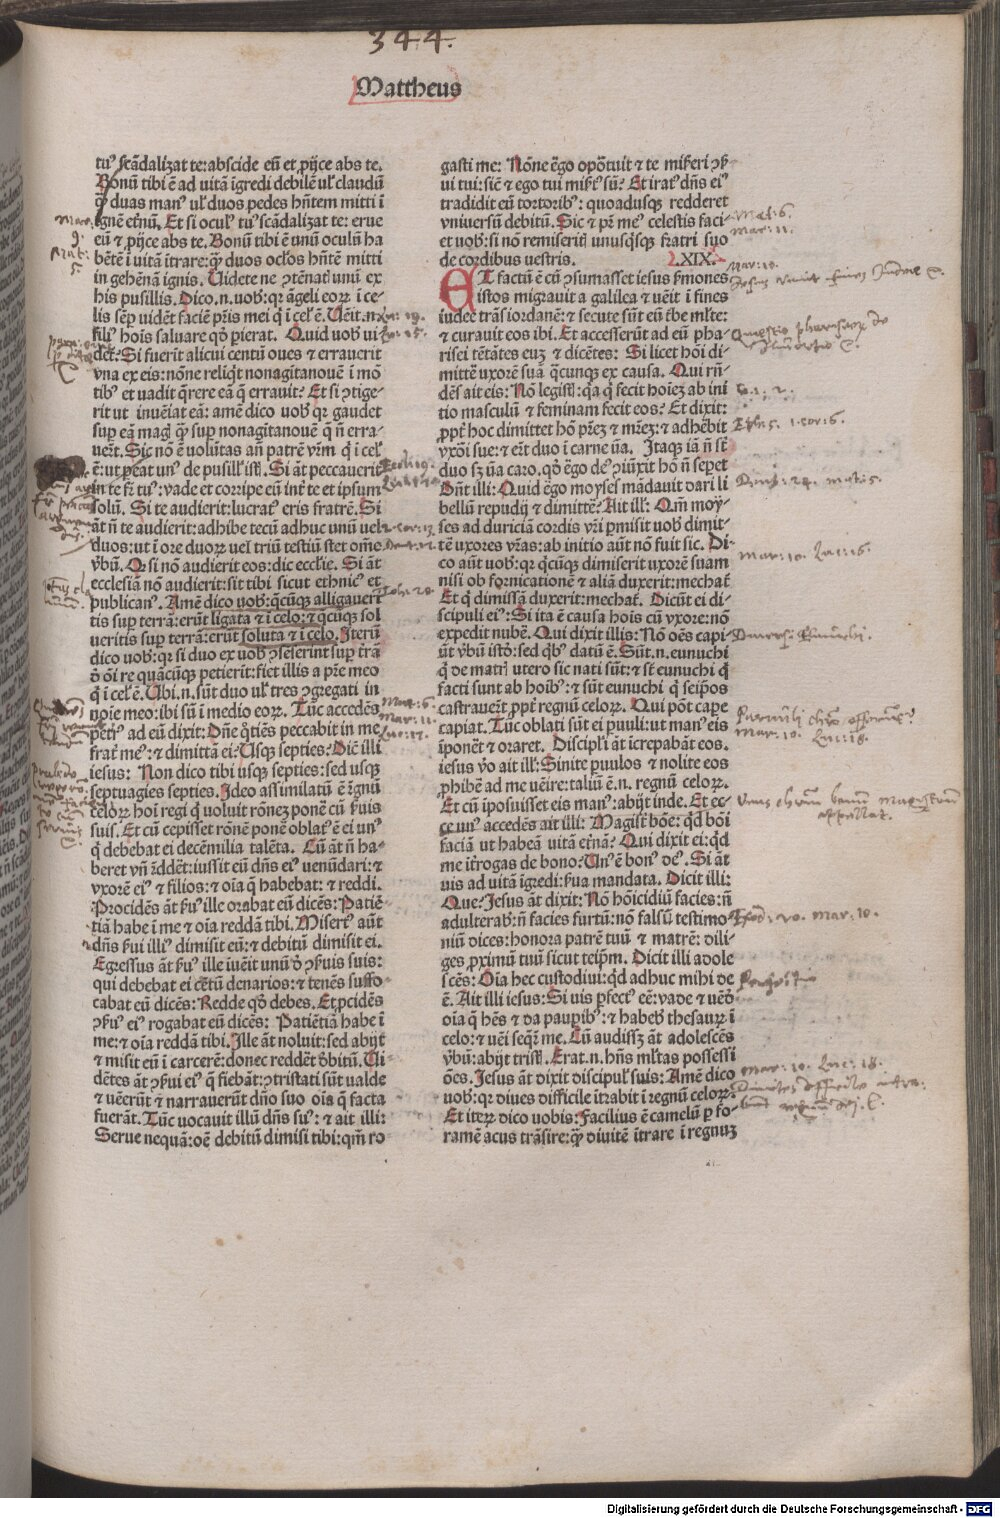 344.
Mattheus
tuꝰ scãdalizat te: abscide eũ et ꝓijce abs te.
Bonũ tibi ẽ ad vitã ĩgredi debilẽ ul̃ claudũ
ꝙ̃ duas manꝰ ul̃ duos pedes hñtem mitti ĩ
ignẽ et̃nũ. Et si oculꝰ tuꝰ scãdalizat te: erue
eũ ⁊ ꝓijce abs te. Bonũ tibi ẽ unũ oculũ ha
bẽtẽ ĩ vitã ĩtrare: ꝙ̃ duos ocl̃os hñtẽ mitti
in gehẽnã ignis. Uidete ne ꝯtẽnat̃ unũ ex
his pusillis. Dico .n. uob̃: qꝛ ãgeli eoꝝ ĩ ce-
lis sẽp uidẽt faciẽ pr̃is mei q̃ ĩ cel̃ ẽ. Uẽit .n.
filiꝰ hoĩs saluare qḋ perat. Quid uob̃ vi
det̃: Si fuerit alicui centũ oues ⁊ errauerit
vna ex eis: nõne relĩqt nonagitanouẽ ĩ mõ
tibꝰ et uadit q̃rere eã q̃ errauit: Et si ꝯtige-
rit ut inuẽiat eã: amẽ dico uob̃ qꝛ gaudet
sup̃ eã magl̃ ꝙ̃ sup̃ nonagitanouẽ q̃ ñ erra-
uer̃t. Sic nõ ẽ volũtas añ patrẽ vr̃m q̃ ĩ cel̃
ẽ: ut p̃eat unꝰ de pusill̃ ist̃. Si ãt peccauerit
in te fr̃ tuꝰ: vade et corripe eũ int̃ te et ipsum
solũ. Si te audierit: lucratꝰ eris fratrẽ. Si
ãt ñ te audierit: adhibe tecũ adhuc unũ uel
duos: ut ĩ ore duoꝝ uel triũ testiũ stet om̃e
ṽbũ. Q̃ si nõ audierit eos: dic eccl̃ie. Si ãt
ecclesiã nõ audierit: sit tibi sicut ethnicꝰ et
publicanꝰ. Amẽ dico uob̃: q̃cũqꝫ alligauer̃
tis sup̃ terrã: erũt ligata ⁊ ĩ celo: ⁊ q̃cũqꝫ sol
ueritis sup̃ terrã: erũt soluta ⁊ ĩ celo. Iterũ
dico uob̃: qꝛ si duo ex uob̃ ꝯsẽserint sup̃ t̃rã
ḋ õi re quãcũqꝫ petierint: fiet illis a pr̃e meo
q̃ ĩ cel̃ ẽ. Ubi .n. sũt duo ul̃ tres ꝯgregati in
noĩe meo: ibi sũ ĩ medio eoꝝ. Tũc accedẽs
petrꝰ ad eũ dixit: Dñe q̃tiẽs peccabit in me
frat̃ meꝰ: ⁊ dimittã ei: Usqꝫ septies: Dic̃ illi
iesus: Non dico tibi usqꝫ septies: sed usqꝫ
septuagies septies. Ideo assimilatũ ẽ r̃gnũ
celoꝝ hoĩ regi q̃ uoluit rõnez ponẽ cũ s̃uis
suis. Et cũ cepisset rõnẽ ponẽ oblatꝰ ẽ ei unꝰ
q̃ debebat ei decẽmilia talẽta. Cũ ãt ñ ha-
beret vñ r̃ddẽt: iussit eũ dñs eiꝰ uenũdari: ⁊
vxorẽ eiꝰ ⁊ filios: ⁊ oĩa q̃ habebat: ⁊ reddi.
Procidẽs ãt s̃uꝰ ille orabat eũ dicẽs: Patiẽ-
tiã habe ĩ me ⁊ oĩa reddã tibi. Misertꝰ aũt
dñs s̃ui illiꝰ dimisit eũ: ⁊ debitũ dimisit ei.
Egressus ãt s̃uꝰ ille ĩuẽit unũ ḋ ꝯs̃uis suis:
qui debebat ei cẽtũ denarios: ⁊ tenẽs suffo-
cabat eũ dicẽs: Redde qḋ debes. Et p̃cidẽs
ꝯs̃uꝰ eiꝰ rogabat eũ dicẽs: Patiẽtiã habe ĩ
me: ⁊ oĩa reddã tibi. Ille ãt noluit: sed abijt
⁊ misit eũ ĩ carcerẽ: donec reddẽt d̃bitũ. Ui
dẽtes ãt ꝯs̃ui eiꝰ q̃ fiebãt: ꝯtristati sũt ualde
⁊ uẽerũt ⁊ narrauerũt dño suo oĩa q̃ facta
fuerãt. Tũc uocauit illũ dñs suꝰ: ⁊ ait illi:
Serue nequã: oẽ debitũ dimisi tibi: qm̃ ro-
gasti me: Nõne ẽgo opõtuit ⁊ te mis̃eri ꝯs̃
ui tui: sic̃ ⁊ ego tui mis̃tꝰ sũ: Et iratꝰ dñs eiꝰ
tradidit eũ tortoribꝰ: quoadusqꝫ redderet
vniuersũ debitũ. Sic ⁊ pr̃ meꝰ celestis faci-
et uob̃: si nõ remiserit̃ unusq̃sqꝫ fratri suo
de cordibus uestris. .XIX.
ET factũ ẽ cũ ꝯsumasset iesus s̃mones
istos migrauit a galilea ⁊ uẽit ĩ fines
iudee trãs iordanẽ: ⁊ secute sũt eũ t̃be ml̃te:
⁊ curauit eos ibi. Et accesserũt ad eũ pha-
risei tẽtãtes euꝫ ⁊ dicẽtes: Si licet hoĩ di-
mittẽ uxorẽ suã q̃cunqꝫ ex causa. Qui rñ-
dẽs ait eis: Nõ legist̃: qꝛ q̃ fecit hoĩez ab ini
tio masculũ ⁊ feminam fecit eos: Et dixit:
ꝓpt̃ hoc dimittet hõ pr̃ez ⁊ mr̃ez: ⁊ adhẽbit
vxõi sue: ⁊ er̃t duo ĩ carne ũa. Itaqꝫ iã ñ st̃
duo sꝫ ũa caro. qḋ ẽgo deꝰ ꝯiũxit hõ ñ sep̃et
Dñt illi: Quid ẽgo moyses mãdauit dari li
bellũ repudij ⁊ dimittẽ: Ait ill̃: Qm̃ moy-
ses ad duriciã cordis vr̃i p̃misit uob̃ dimit-
tẽ uxores vr̃as: ab initio aũt nõ fuit sic. Di-
co aũt uob̃: qꝛ q̃cũqꝫ dimiserit uxorẽ suam
nisi ob fornicationẽ ⁊ aliã duxerit: mechat̃
Et q̃ dimissã duxerit: mechat̃. Dicũt ei di-
scipuli eiꝰ: Si ita ẽ causa hoĩs cũ vxore: nõ
expedit nubẽ. Qui dixit illis: Nõ oẽs capi-
ũt ṽbũ istḋ: sed q̃bꝰ datũ ẽ. Sũt .n. eunuchi
q̃ de matr̃ utero sic nati sũt: ⁊ st̃ eunuchi q̃
facti sunt ab hoĩbꝰ: ⁊ sũt eunuchi q̃ seip̃os
castrauer̃t ꝓpt̃ regnũ celoꝝ. Qui põt cape
capiat. Tũc oblati sũt ei puuli: ut manꝰ eis
ĩponẽt ⁊ oraret. Discipl̃i ãt ĩcrepabãt eos.
iesus v̊o ait ill̃: Sinite puulos ⁊ nolite eos
ꝓhibẽ ad me uẽire: taliũ ẽ .n. regnũ celoꝝ.
Et cũ ĩposuisset eis manꝰ: abijt inde. Et ec-
ce unꝰ accedẽs ait illi: Magist̃ bõe: qḋ bõi
faciã ut habeã vitã et̃nã: Qui dixit ei: qḋ
me ĩt̃rogas de bono: Unꝰ ẽ bonꝰ deꝰ. Si ãt
uis ad vitã ĩgredi: s̃ua mandata. Dicit illi:
Que: Jesus ãt dixit: Nõ hõicidiũ facies: ñ
adulterab̃: ñ facies furtũ: nõ falsũ testimo
niũ dices: honora patrẽ tuũ ⁊ matrẽ: dili-
ges ꝓximũ tuũ sicut teip̃m. Dicit illi adole
scẽs: Oĩa hec custodiui: qḋ adhuc mihi de
ẽ. Ait illi iesus: Si uis p̃fectꝰ eẽ: vade ⁊ uẽḋ
oĩa q̃ hẽs ⁊ da paupibꝰ: ⁊ habeb̃ thesauꝝ ĩ
celo: ⁊ uẽi seq̃r̃ me. Cũ audissꝫ ãt adolescẽs
ṽbũ: abijt trist̃. Erat .n. hñs ml̃tas possessi
ões. Jesus ãt dixit discipul̃ suis: Amẽ dico
uob̃: qꝛ diues difficile ĩtrabit ĩ regnũ celoꝝ.
Et iteꝝ dico uobis: Facilius ẽ camelũ p̃ fo-
ramẽ acus trãsire: ꝙ̃ diuitẽ ĩtrare ĩ regnuꝫ
Mar: 11.
Mar: 10.
1. cor: 6.
Mar: 10. Luc: 16.
Mar: 10. Luc: 18.
Exod: 20. Mar: 10.
Mar: 10. Luc: 18.
Digitalisierung gefördert durch die Deutsche Forschungsgemeinschaft - DFG